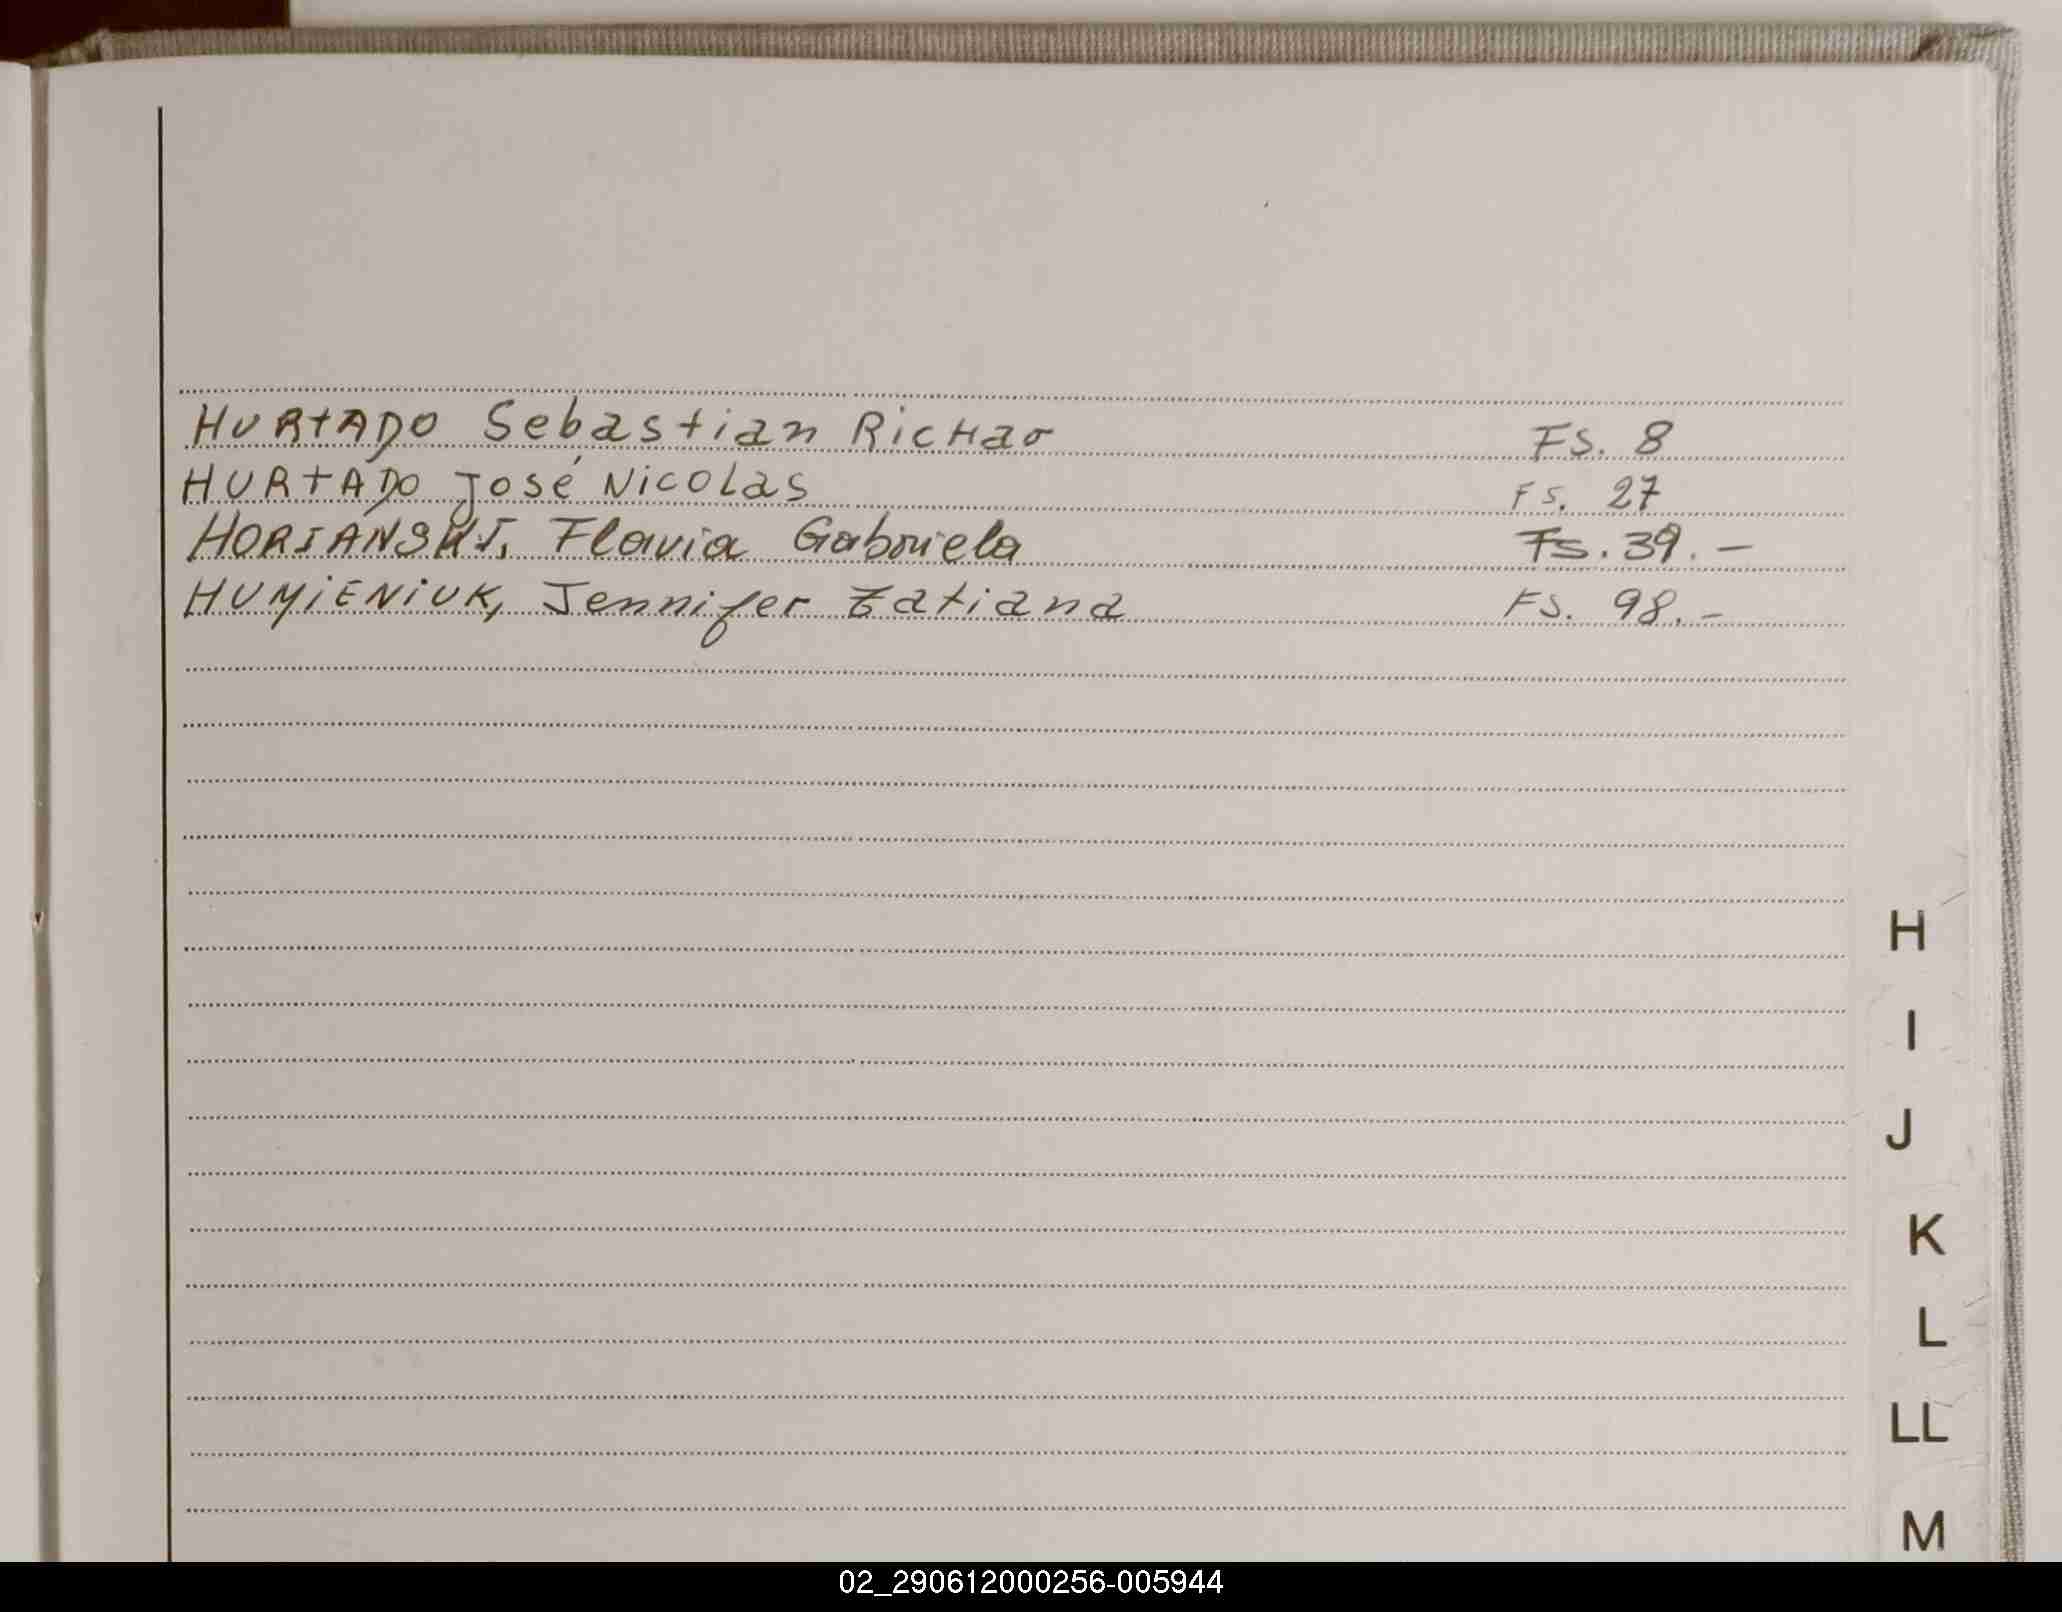 HURTADO Sebastian RicHar FS. 8
HURTADO José Nicolas FS. 27
HORIANSKI, Flavia Gabriela FS. 39.-
HUMiENiUK, Jennifer Tatiana FS. 98.-
H
I
J
K
L
LL
M
02_290612000256-005944